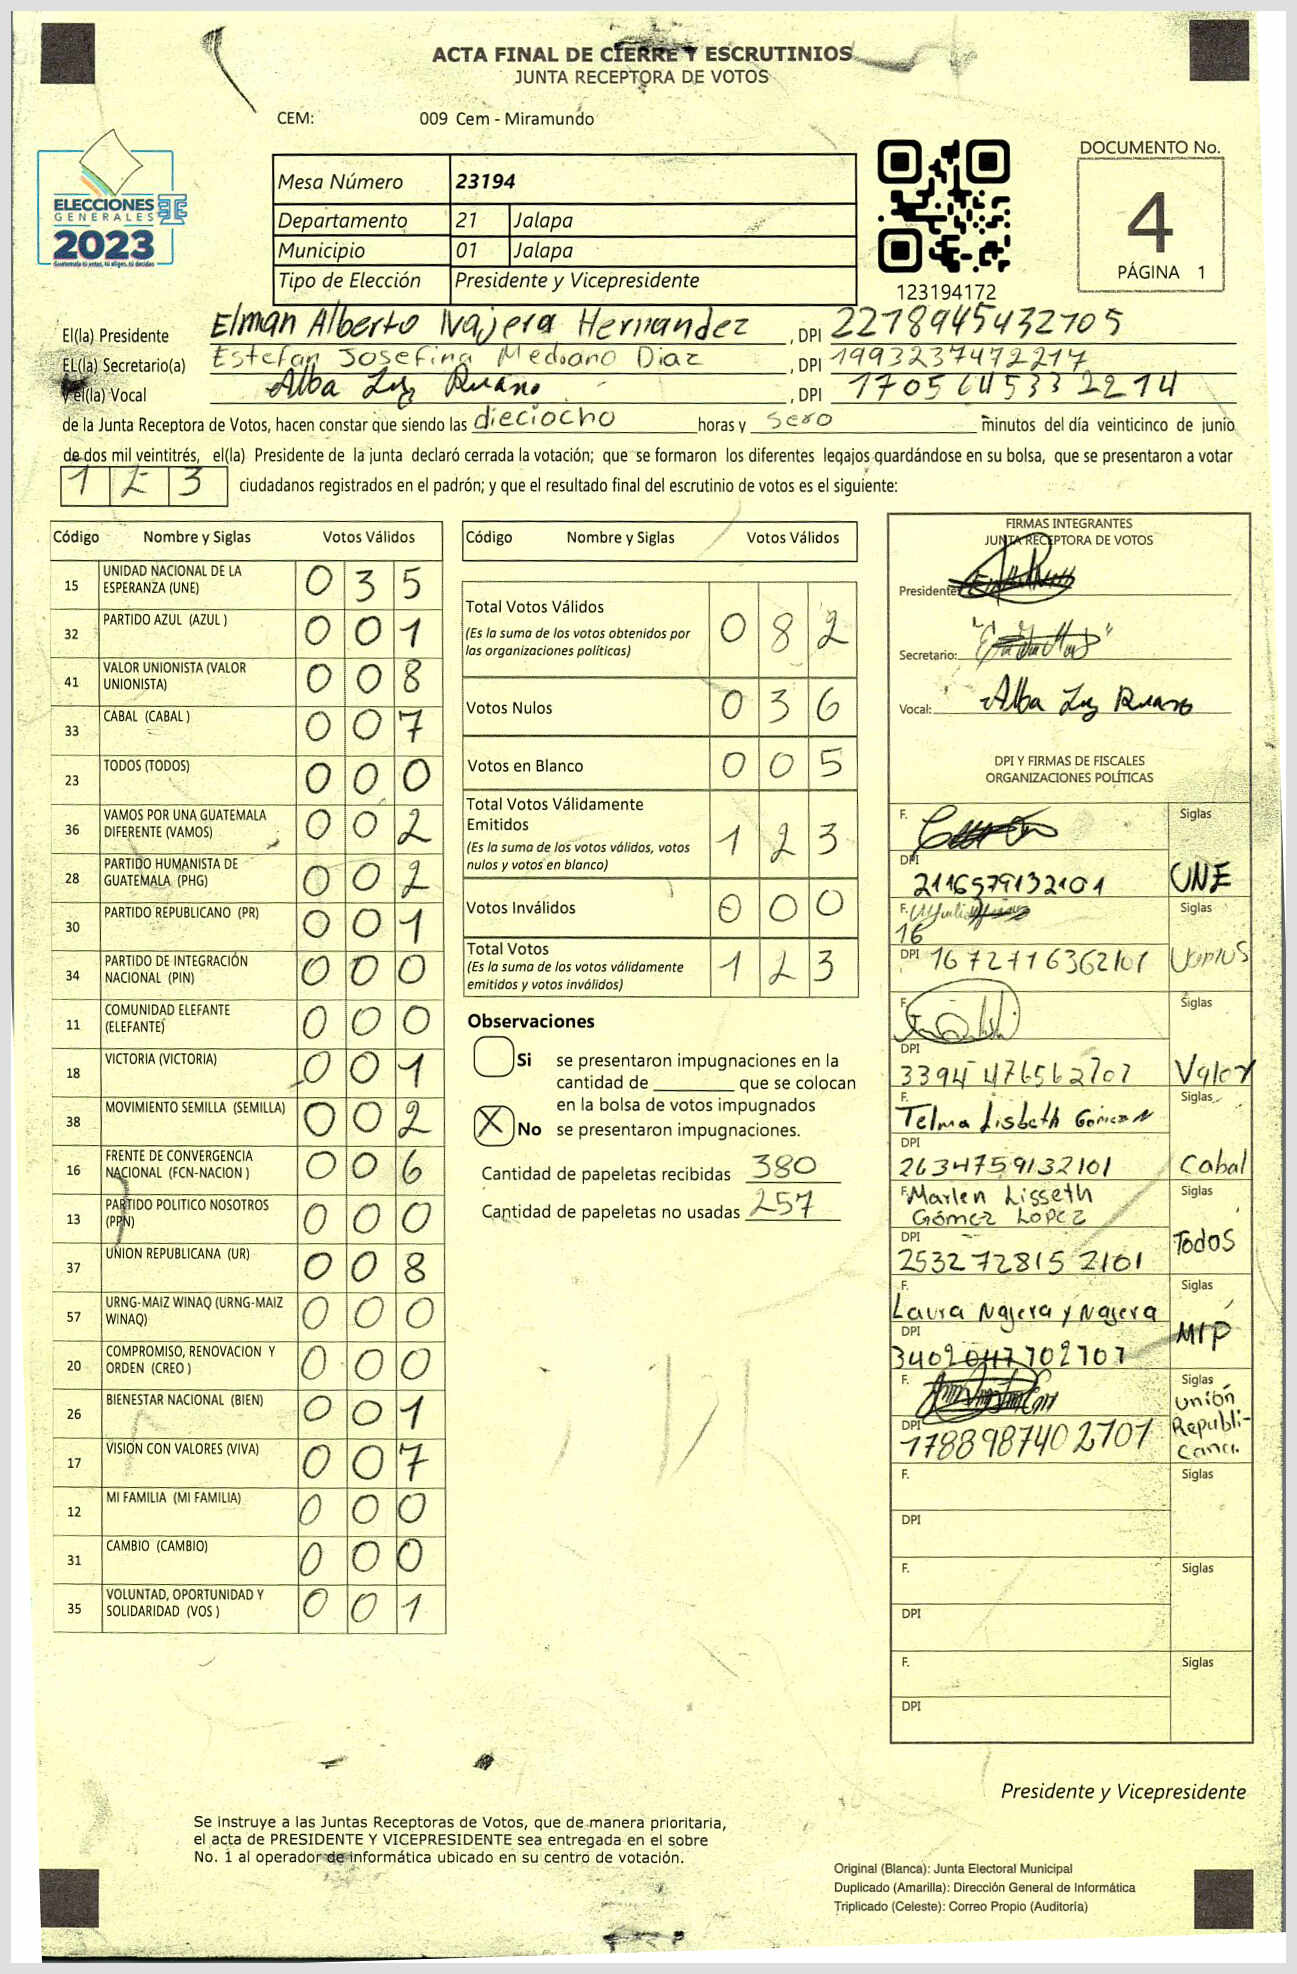 ACTA FINAL DE CIERRE Y ESCRUTINIOS
JUNTA RECEPTORA DE VOTOS
CEM: 009 Cem - Miramundo
ELECCIONES
GENERALES
2023
Guatemala tú votas, tú eliges, tú decides
Mesa Número 23194
Departamento 21 Jalapa
Municipio 01 Jalapa
Tipo de Elección Presidente y Vicepresidente
123194172
DOCUMENTO No.
4
PÁGINA 1
El(la) Presidente Elman Alberto Najera Hernandez, DPI 2278945432105
EL(la) Secretario(a) Estefan Josefina Medrano Diaz, DPI 1993237472217
y el(la) Vocal Alba Luz Ruano, DPI 1705645332214
de la Junta Receptora de Votos, hacen constar que siendo las dieciocho horas y sero minutos del día veinticinco de junio
de dos mil veintitrés, el(la) Presidente de la junta declaró cerrada la votación; que se formaron los diferentes legajos guardándose en su bolsa, que se presentaron a votar
1 2 3 ciudadanos registrados en el padrón; y que el resultado final del escrutinio de votos es el siguiente:
Código Nombre y Siglas Votos Válidos
15 UNIDAD NACIONAL DE LA ESPERANZA (UNE) 0 3 5
32 PARTIDO AZUL (AZUL ) 0 0 1
41 VALOR UNIONISTA (VALOR UNIONISTA) 0 0 8
33 CABAL (CABAL ) 0 0 7
23 TODOS (TODOS) 0 0 0
36 VAMOS POR UNA GUATEMALA DIFERENTE (VAMOS) 0 0 2
28 PARTIDO HUMANISTA DE GUATEMALA (PHG) 0 0 2
30 PARTIDO REPUBLICANO (PR) 0 0 1
34 PARTIDO DE INTEGRACIÓN NACIONAL (PIN) 0 0 0
11 COMUNIDAD ELEFANTE (ELEFANTE) 0 0 0
18 VICTORIA (VICTORIA) 0 0 1
38 MOVIMIENTO SEMILLA (SEMILLA) 0 0 2
16 FRENTE DE CONVERGENCIA NACIONAL (FCN-NACION ) 0 0 6
13 PARTIDO POLITICO NOSOTROS (PPN) 0 0 0
37 UNION REPUBLICANA (UR) 0 0 8
57 URNG-MAIZ WINAQ (URNG-MAIZ WINAQ) 0 0 0
20 COMPROMISO, RENOVACION Y ORDEN (CREO ) 0 0 0
26 BIENESTAR NACIONAL (BIEN) 0 0 1
17 VISION CON VALORES (VIVA) 0 0 7
12 MI FAMILIA (MI FAMILIA) 0 0 0
31 CAMBIO (CAMBIO) 0 0 0
35 VOLUNTAD, OPORTUNIDAD Y SOLIDARIDAD (VOS ) 0 0 1
Código Nombre y Siglas Votos Válidos
Total Votos Válidos 0 8 2
(Es la suma de los votos obtenidos por
las organizaciones políticas)
Votos Nulos 0 3 6
Votos en Blanco 0 0 5
Total Votos Válidamente
Emitidos 1 2 3
(Es la suma de los votos válidos, votos
nulos y votos en blanco)
Votos Inválidos 0 0 0
Total Votos 1 2 3
(Es la suma de los votos válidamente
emitidos y votos inválidos)
Observaciones
Si se presentaron impugnaciones en la
cantidad de ________ que se colocan
en la bolsa de votos impugnados
X No se presentaron impugnaciones.
Cantidad de papeletas recibidas 380
Cantidad de papeletas no usadas 257
FIRMAS INTEGRANTES
JUNTA RECEPTORA DE VOTOS
Presidente:
Secretario:
Vocal: Alba Luz Ruano
DPI Y FIRMAS DE FISCALES
ORGANIZACIONES POLÍTICAS
F. Siglas
DPI 2116579132101 UNE
F. Siglas
16
DPI 1672716362101
F. Siglas
DPI 3394476562707 Valor
F. Telma Lisbeth Siglas
DPI 2634759132101 Cabal
F. Marlen Lisseth Siglas
Gómez Lopez
DPI 2532728152101 Todos
F. Siglas
Laura Najera y Najera
DPI MIP
F. Siglas
Unión
Republi-
cana.
DPI 1788987402707
F. Siglas
DPI
F. Siglas
DPI
F. Siglas
DPI
Presidente y Vicepresidente
Se instruye a las Juntas Receptoras de Votos, que de manera prioritaria,
el acta de PRESIDENTE Y VICEPRESIDENTE sea entregada en el sobre
No. 1 al operador de informática ubicado en su centro de votación.
Original (Blanca): Junta Electoral Municipal
Duplicado (Amarilla): Dirección General de Informática
Triplicado (Celeste): Correo Propio (Auditoría)